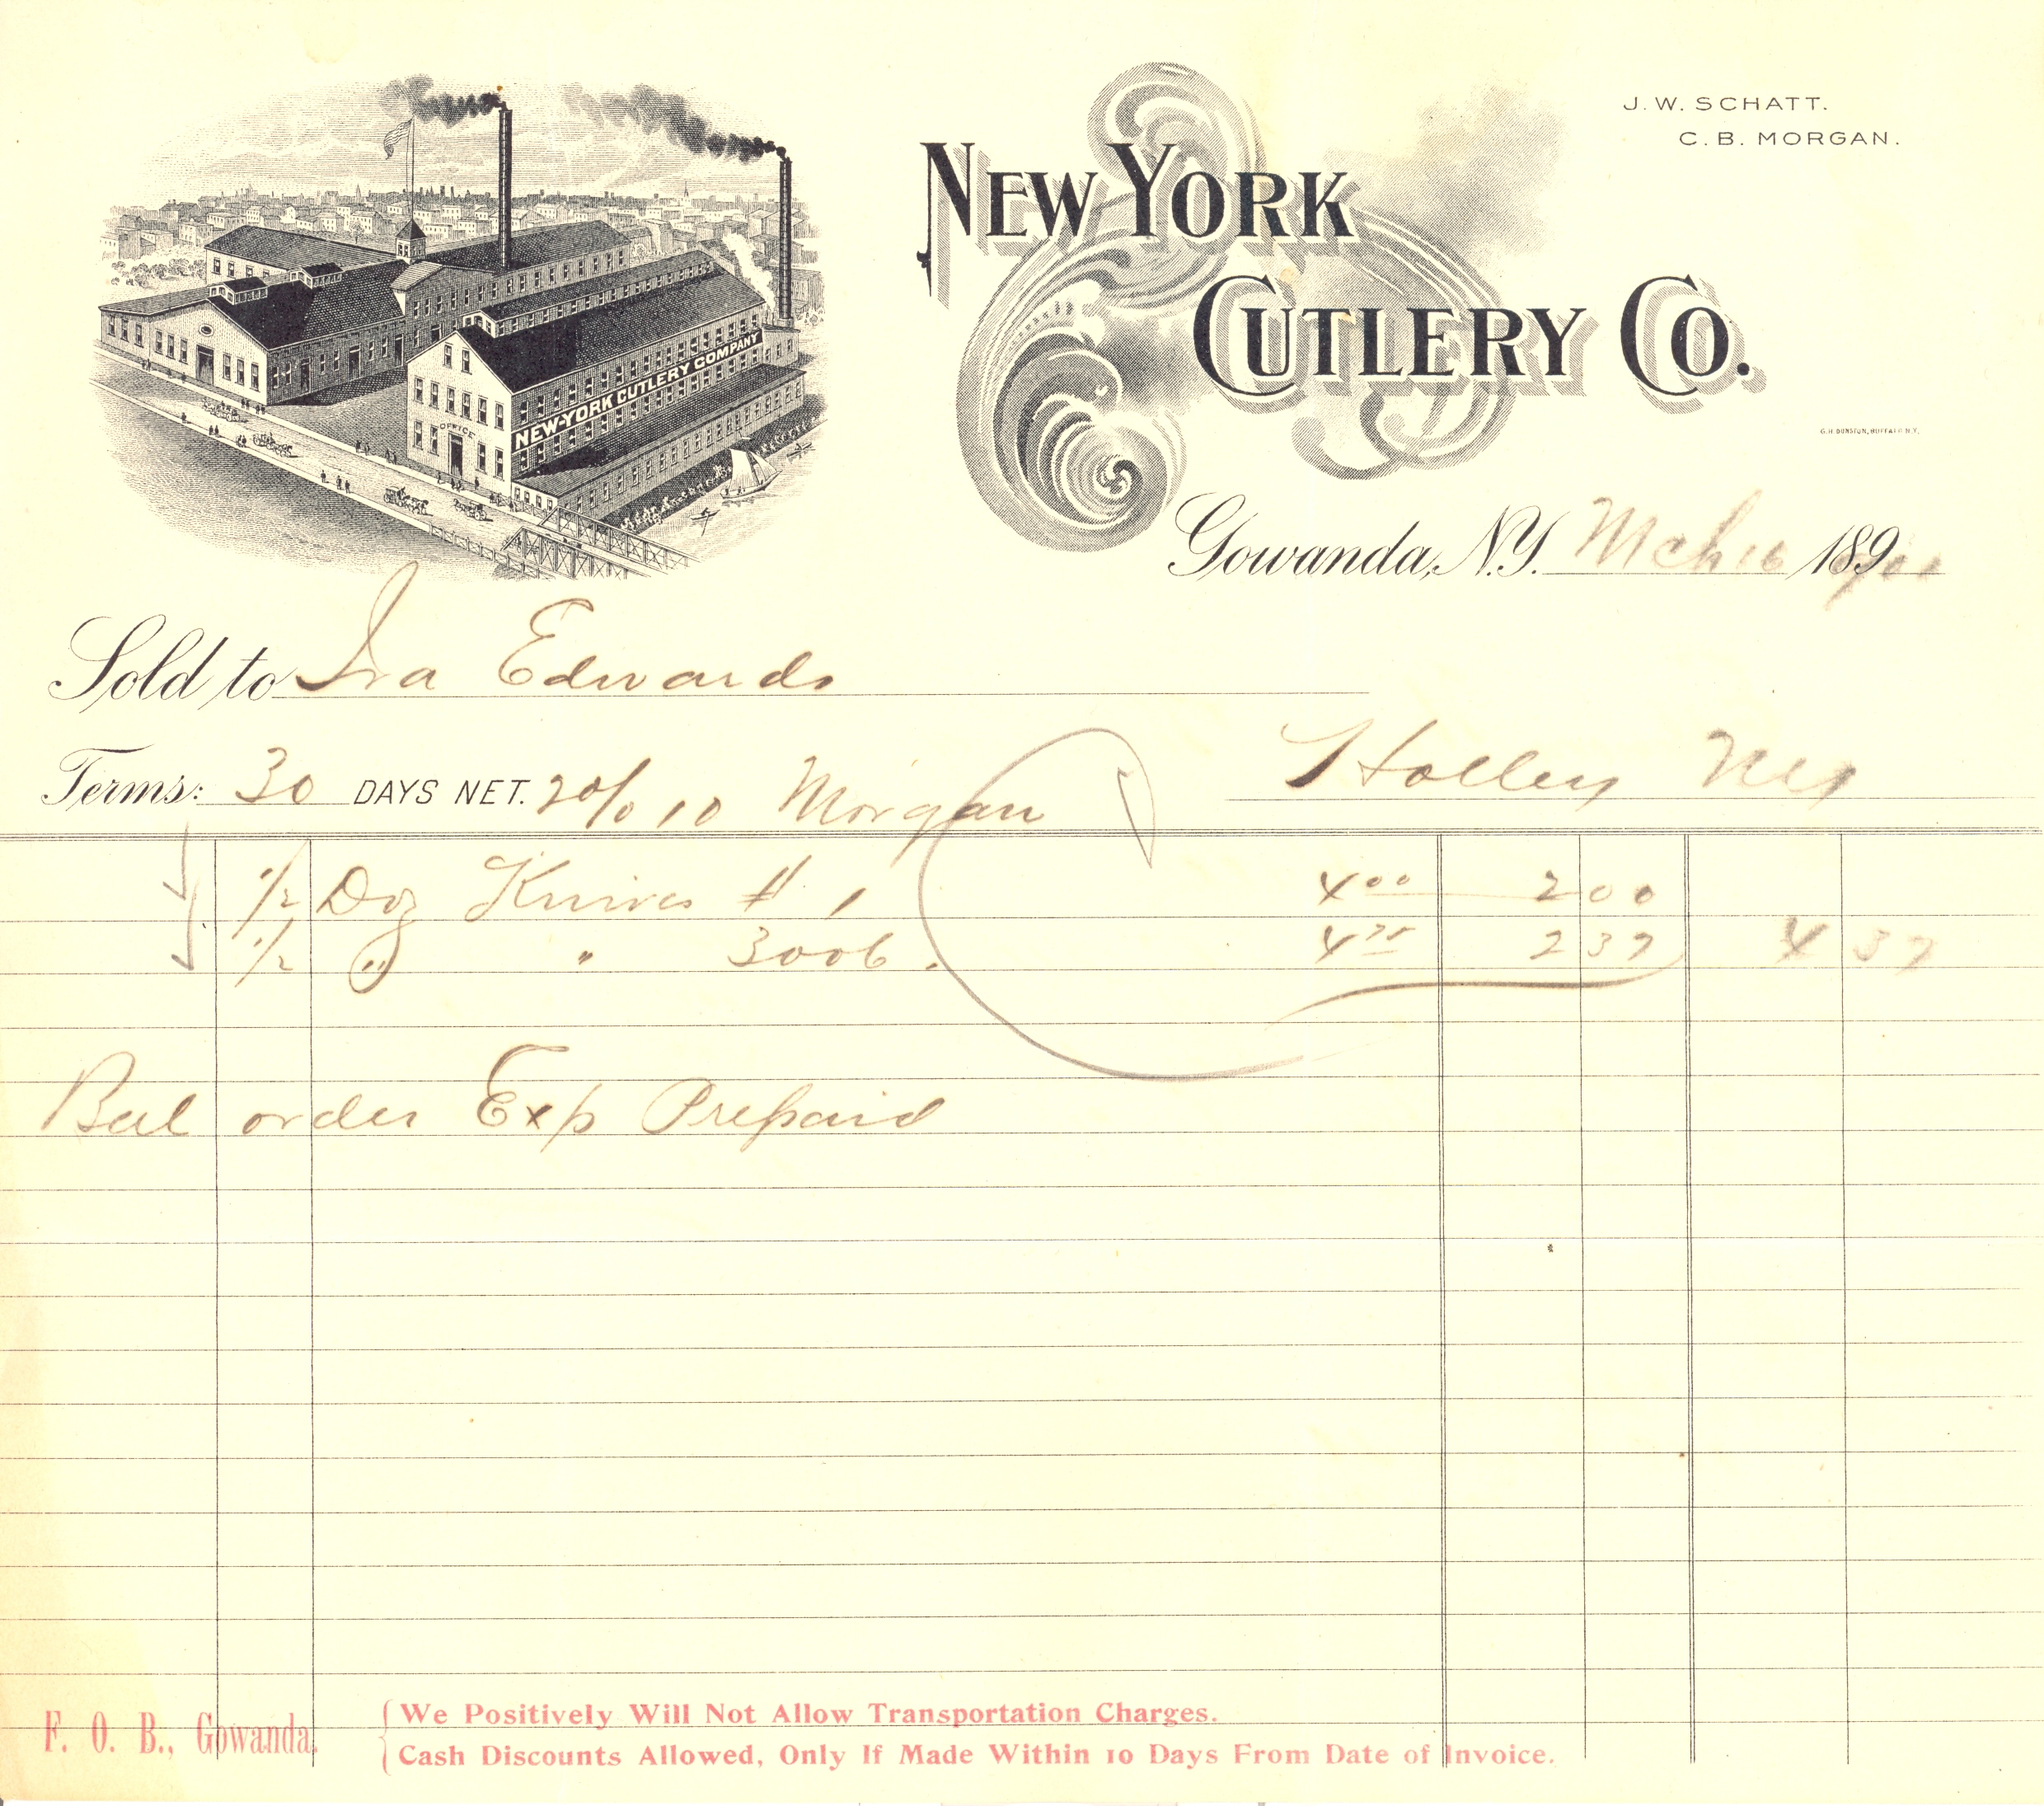 J. W. SCHATT.
C. B. MORGAN.
NEW YORK
CUTLERY CO.
NEW-YORK CUTLERY COMPANY
OFFICE
G. H. DUNSTON, BUFFALO N.Y.
Gowanda, N.Y. Mch 16 189
Sold to Ira Edwards
Holley NY
Terms: 30 DAYS NET. 2% 10 Morgan
1/2 Doz Knives # 1 4 00 2 00
1/2 " " 3006 4 75 2 37 4 37
Bal order Exp Prepaid
F. O. B., Gowanda.
We Positively Will Not Allow Transportation Charges.
Cash Discounts Allowed, Only If Made Within 10 Days From Date of Invoice.